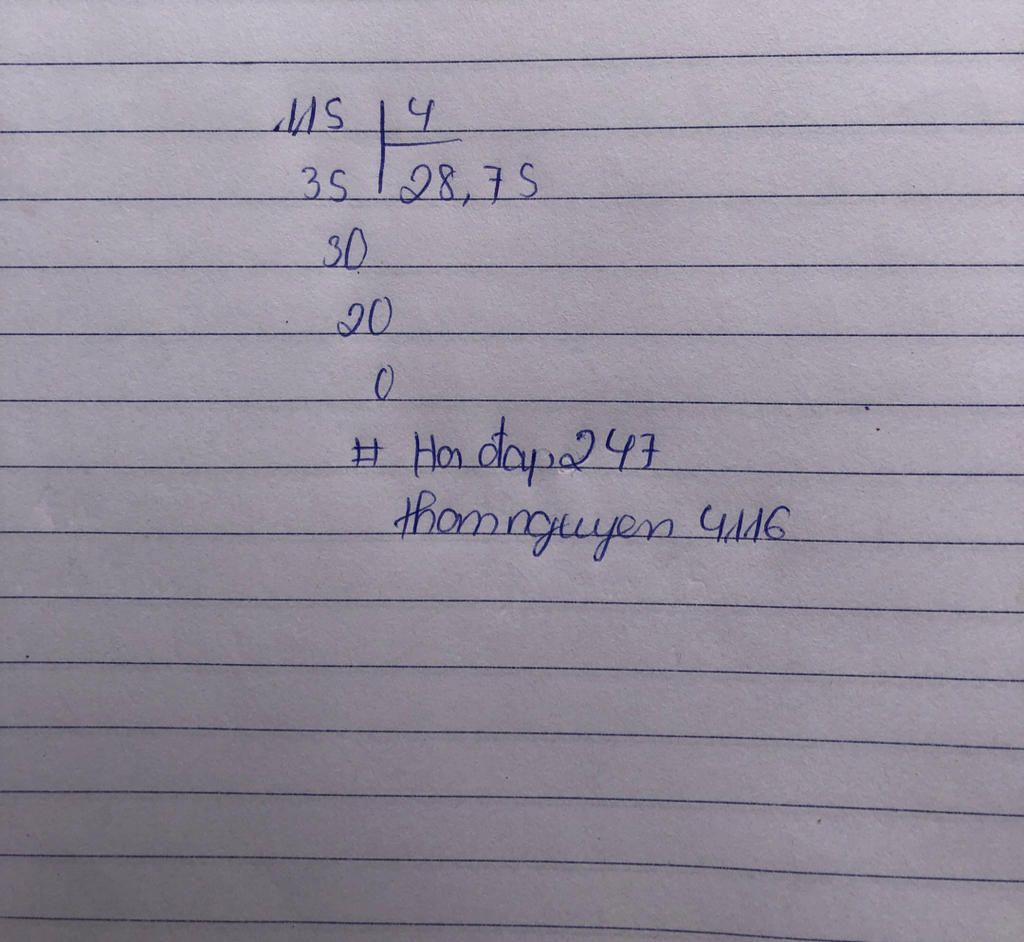 115 4
35 28,75
30
20
0
# Hoi đap 247
thomnguyen 4116